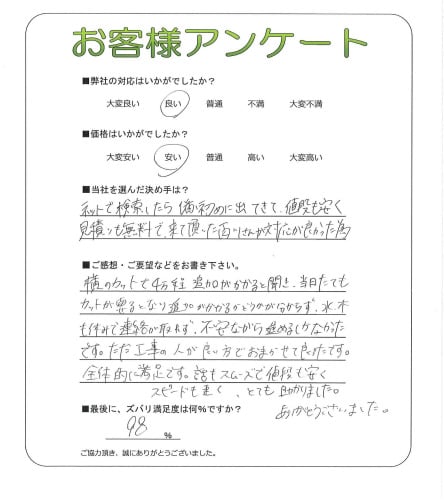 お客様アンケート
■弊社の対応はいかがでしたか？
大変良い 良い 普通 不満 大変不満
■価格はいかがでしたか？
大変安い 安い 普通 高い 大変高い
■当社を選んだ決め手は？
ネットで検索したら 初めに出てきて、値段も安く
見積りも無料で、来て頂いた さんが対応が良かった為
■ご感想・ご要望などをお書き下さい。
横のカットで4万程 追加がかかると聞き、当日たても
カットが るとなり追加がかかるかどうかが分からず、水木
も休みで連絡が取れず、不安ながら進めるしかなかった
です。ただ工事の人が良い方でおまかせて良かたです。
全体的に満足です。話もスムーズで値段も安く
スピードも速く、とても助かりました。
ありがとうございました。
■最後に、ズバリ満足度は何%ですか？
98 %
ご協力頂き、誠にありがとうございました。